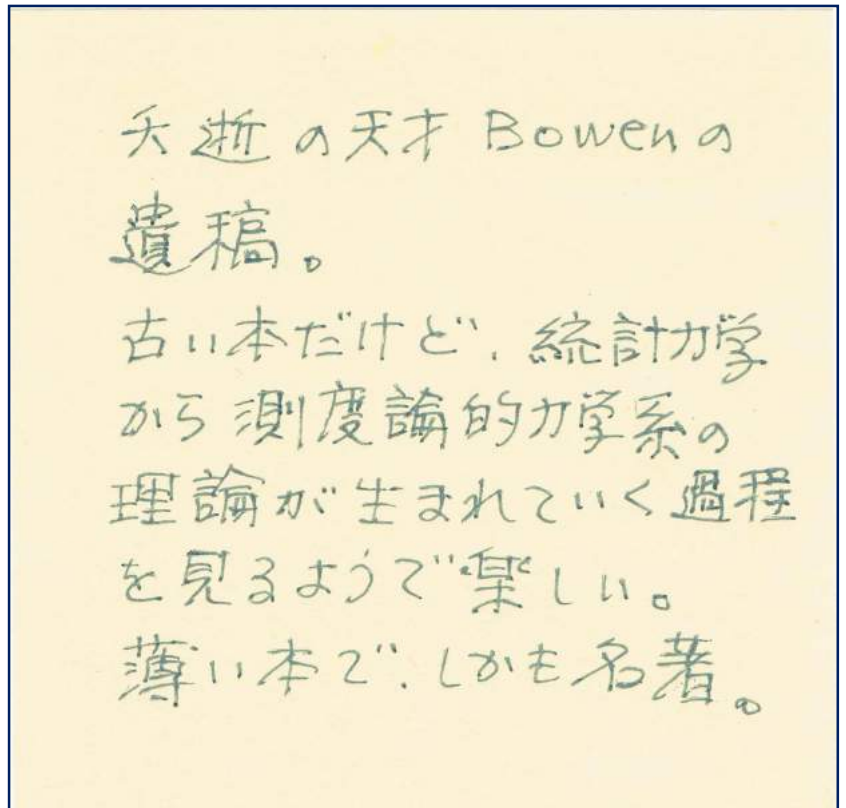 夭逝の天才 Bowenの
遺稿。
古い本だけど、統計力学
から測度論的力学系の
理論が生まれていく過程
を見るようで楽しい。
薄い本で、しかも名著。